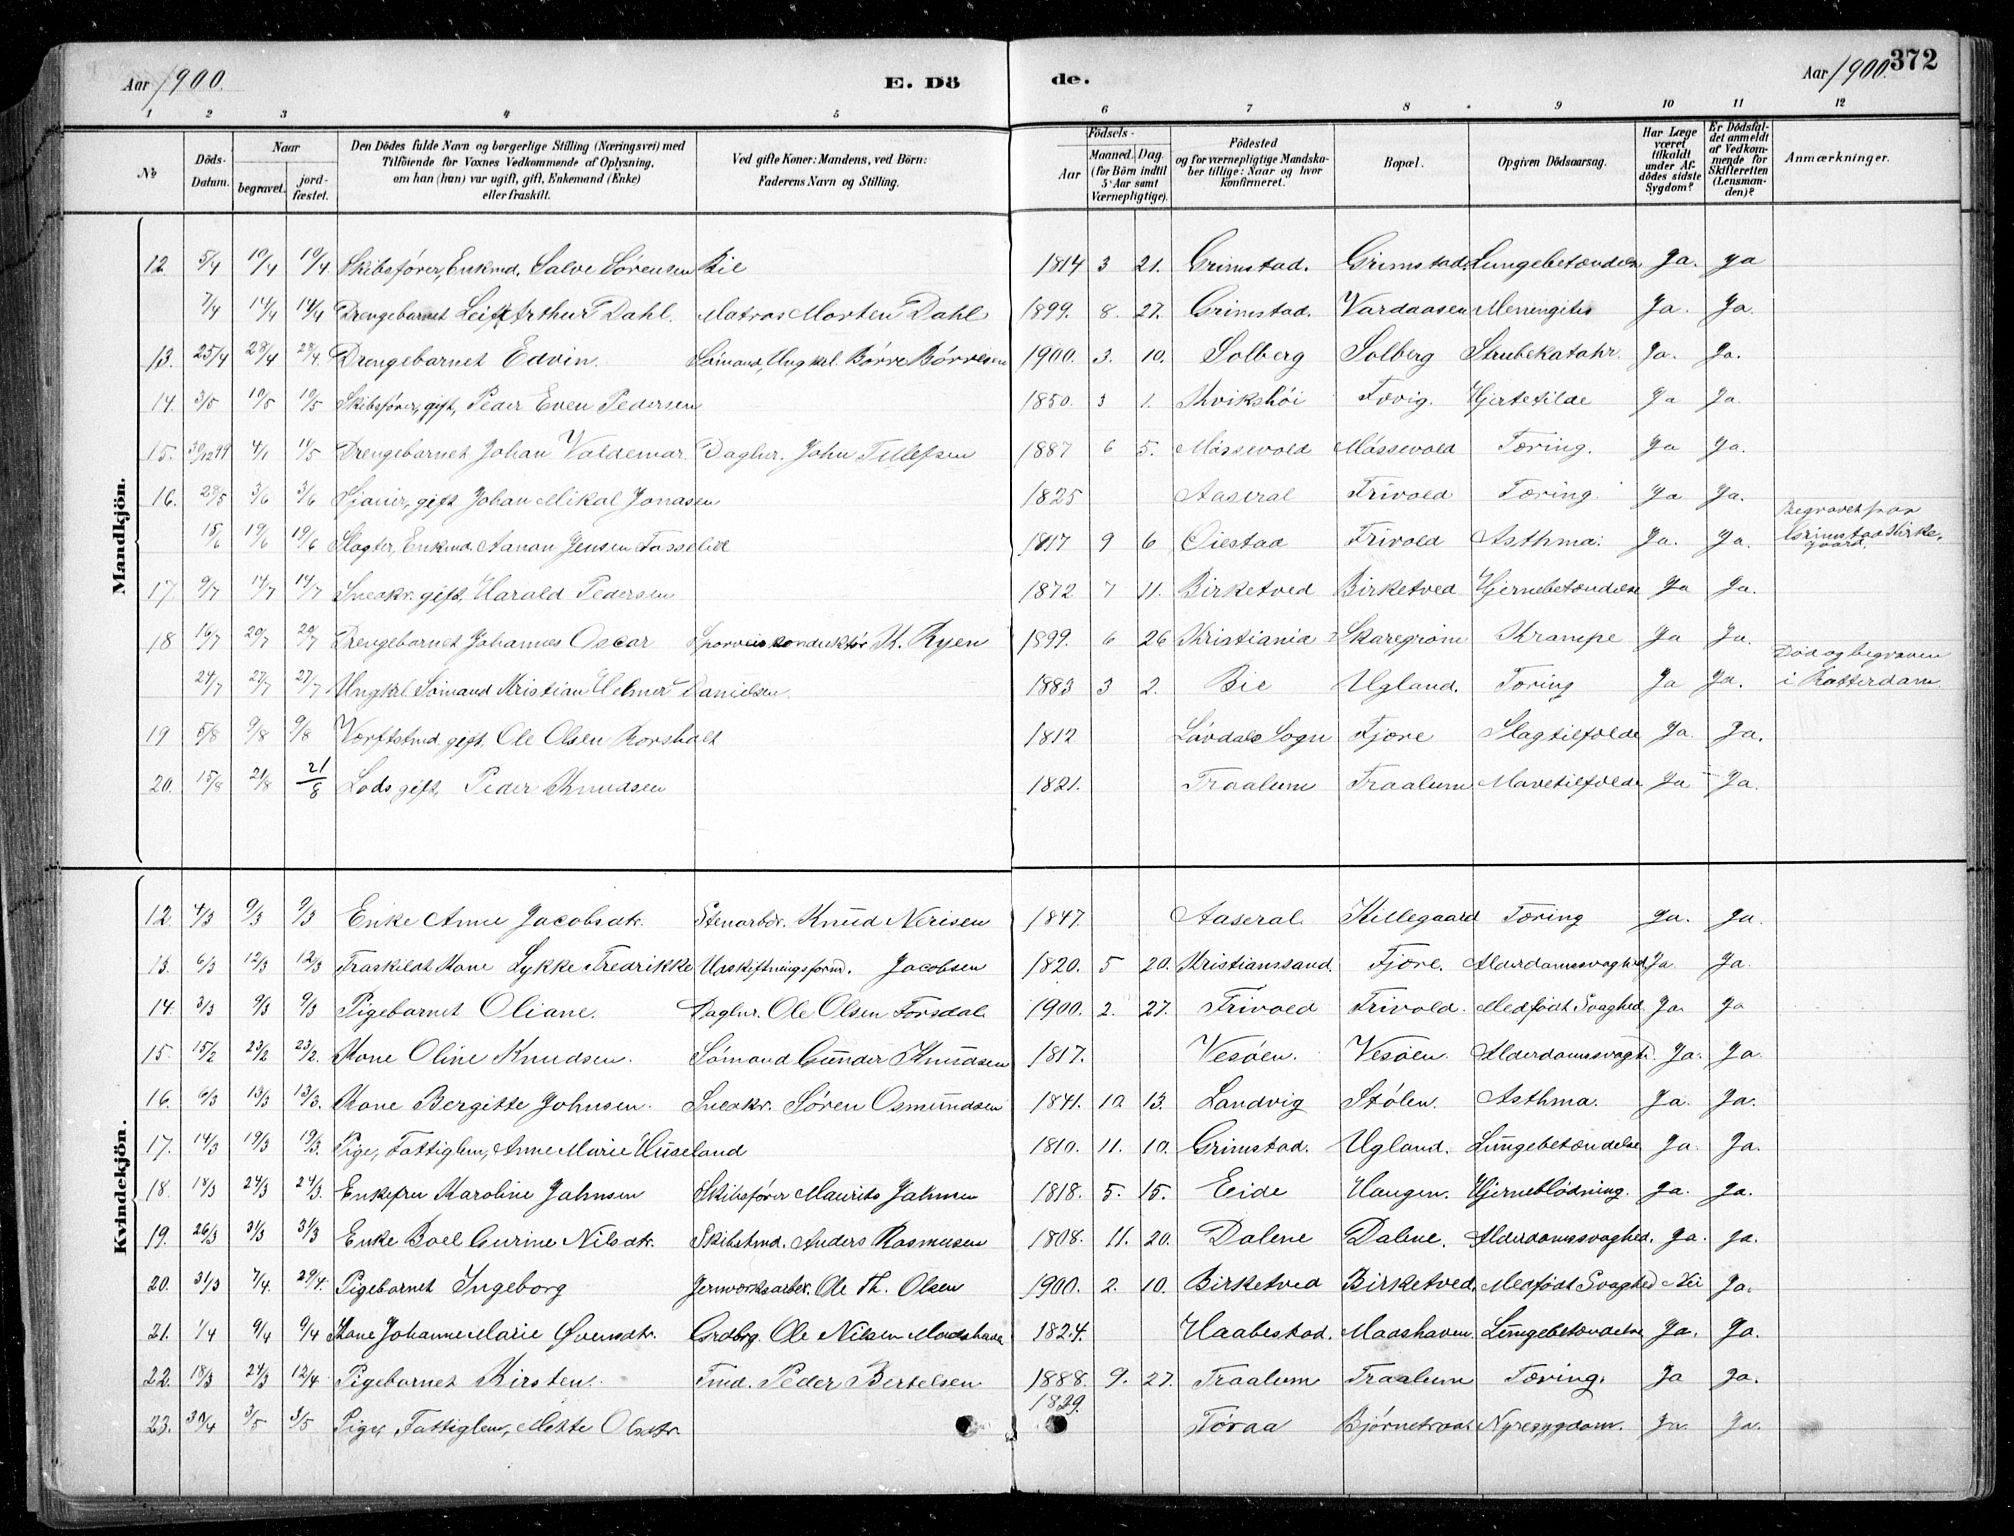 Aar 1900.
E. Dö
de.
Aar 1900.
372
1 2 3 4 5 6 7 8 9 10 11 12
№
Döds-Datum.
Naar
begravet.
jord-fæstet.
Den Dödes fulde Navn og borgerlige Stilling (Næringsvei) med
Tilföiende for Voxnes Vedkommende af Oplysning,
om han (hun) var ugift, gift, Enkemand (Enke)
eller fraskilt.
Ved gifte Koner: Mandens, ved Börn:
Faderens Navn og Stilling.
Födsels-
Aar
Maaned. Dag.
(for Börn indtil 5 Aar samt Værnepligtige).
Födested
og for værnepligtige Mandska-
ber tillige: Naar og hvor
konfirmeret.
Bopæl.
Opgiven Dödsaarsag.
Har Læge været tilkaldt under Af-dödes sidste Sygdom?
Er Dödsfal-det anmeldt af Vedkom-mende for Skifteretten (Lensman-den)?
Anmærkninger.
Mandkjön.
12. 5/4 10/4 10/4 Skibsfører, Enkmd. Salve Sørensen Bie 1814 3 21. Grimstad. Grimstad. Lungebetændelse Ja. Ja
7/4 14/4 14/4 Drengebarnet Leif Arthur Dahl. Matros Morten Dahl 1899. 8. 27. Grimstad. Vardaasen Menengitis Ja. Ja.
13. 25/4 28/4 28/4 Drengebarnet Edvin. Sømand, Ungkl. Børre Børresen 1900. 3. 10. Solberg Solberg Strubekatahr. Ja. Ja.
14. 3/5 10/5 10/5 Skibsfører, gift, Peder Even Pedersen 1850. 3 1. Kvikshøi Fevig. Hjertefilde Ja Ja.
15. 30/12 99 4/1 11/5 Drengebarnet Johan Valdemar. Dagl. John Tellefsen 1887 6 5. Møssevold Møssevold Tæring. Ja Ja.
16. 28/5 3/6 3/6 gift Johan Mikal Jonasen 1825 Aaseral Frivold Tæring. Ja Ja.
15/6 19/6 19/6 Slagter, Enkmd. Aanon Jensen Fasselid 1817 9 6 Øiestad Frivold Asthma. Ja. Ja. Begravet paa Grimstad Kirke-gaard.
17. 9/7 14/7 14/7 Snedkr. gift. Harald Pedersen 1872 7 11. Birketved Birketved Hjernebetændelse Ja Ja.
18 16/7 20/7 20/7 Drengebarnet Johannes Oscar Sporveiskonduktør K. Ryen 1899. 6 26 Kristiania Skaregrøm Krampe Ja Ja.
24/7 27/7 27/7 Ungkl. Sømand Kristian Helmer Danielsen. 1883 3 2. Bie Ugland. Tæring Ja Ja. Død og begraven i Rotterdam
19 5/8 9/8 9/8 Værftstmd gift. Ole Olsen Rorsholt 1812 Løvdals Sogn Fjære Slagtilfælde Ja Ja.
20. 15/8 21/8 21/8 Lods gift, Peder Knudsen 1821. Traalum Traalum Mavetilfælde Ja Ja.
Kvindekjön.
12. 4/3 9/3 9/3 Enke Anne Jacobsdtr. Stenarbdr. Knud Nerisen 1847. Aaseral. Killegaard Tæring Ja. Ja.
13. 6/3 12/3 12/3 Fraskildt Kone Lykke Fredrikke Udskiftningsformd. Jacobsen 1820. 5 20. Kristianssand. Fjære. Alderdomssvaghed Ja Ja.
14. 3/3 9/3 9/3 Pigebarnet Oliane. Daglnr. Ole Olsen Forsdal. 1900. 2. 27. Frivold Frivold. Medfødt Svaghed Ja. Ja
15. 15/2 23/2 23/2. Kone Oline Knudsen. Sømand Gunder Knudsen 1817. Vesøen. Vesøen. Alderdomssvagh. Ja. Ja.
16. 6/3 13/3 13/3. Kone Bergitte Johnsen. Snedkr. Søren Osmundsen 1841. 10. 13. Landvig Stølen. Asthma. Ja. Ja.
17. 14/3 19/3 19/3. Pige, Fattiglem, Anne Marie Huseland 1810. 11. 10. Grimstad. Ugland. Lungebetændelse Ja. Ja.
18. 18/3 24/3 24/3. Enkefru Karoline Jahnsen Skibsfører Maurits Jahnsen 1818. 5. 15. Eide Haugen. Hjerneblødning. Ja. Ja.
19. 26/3 31/3 31/3 Enke Boel Gurine Nilsdtr. Skibstmd. Anders Rasmusen 1808. 11. 20. Dalene Dalene. Alderdomssvaghed. Ja. Ja.
20. 31/3 7/4 29/4. Pigebarnet Ingeborg Jernverksarbdr. Ole Th. Olsen 1900. 2. 10. Birketved Birketved. Medfødt Svaghed Nei Ja.
21. 1/4 9/4 9/4 Kone Johanne Marie Svendtr. Grdbrg. Ole Nilsen Madshave 1824. Haabestad. Madshaven. Lungebetændelse Ja. Ja.
22. 18/3 24/3 12/4 Pigebarnet Kirsten. Tmd. Peder Bertelsen 1888. 9. 27. Traalum Traalum Tæring. Ja Ja.
23. 30/4 3/5 3/5 Pige, Fattiglem, Mette Olsdtr. 1829. Føraa Nyresygdom. Ja. Ja.